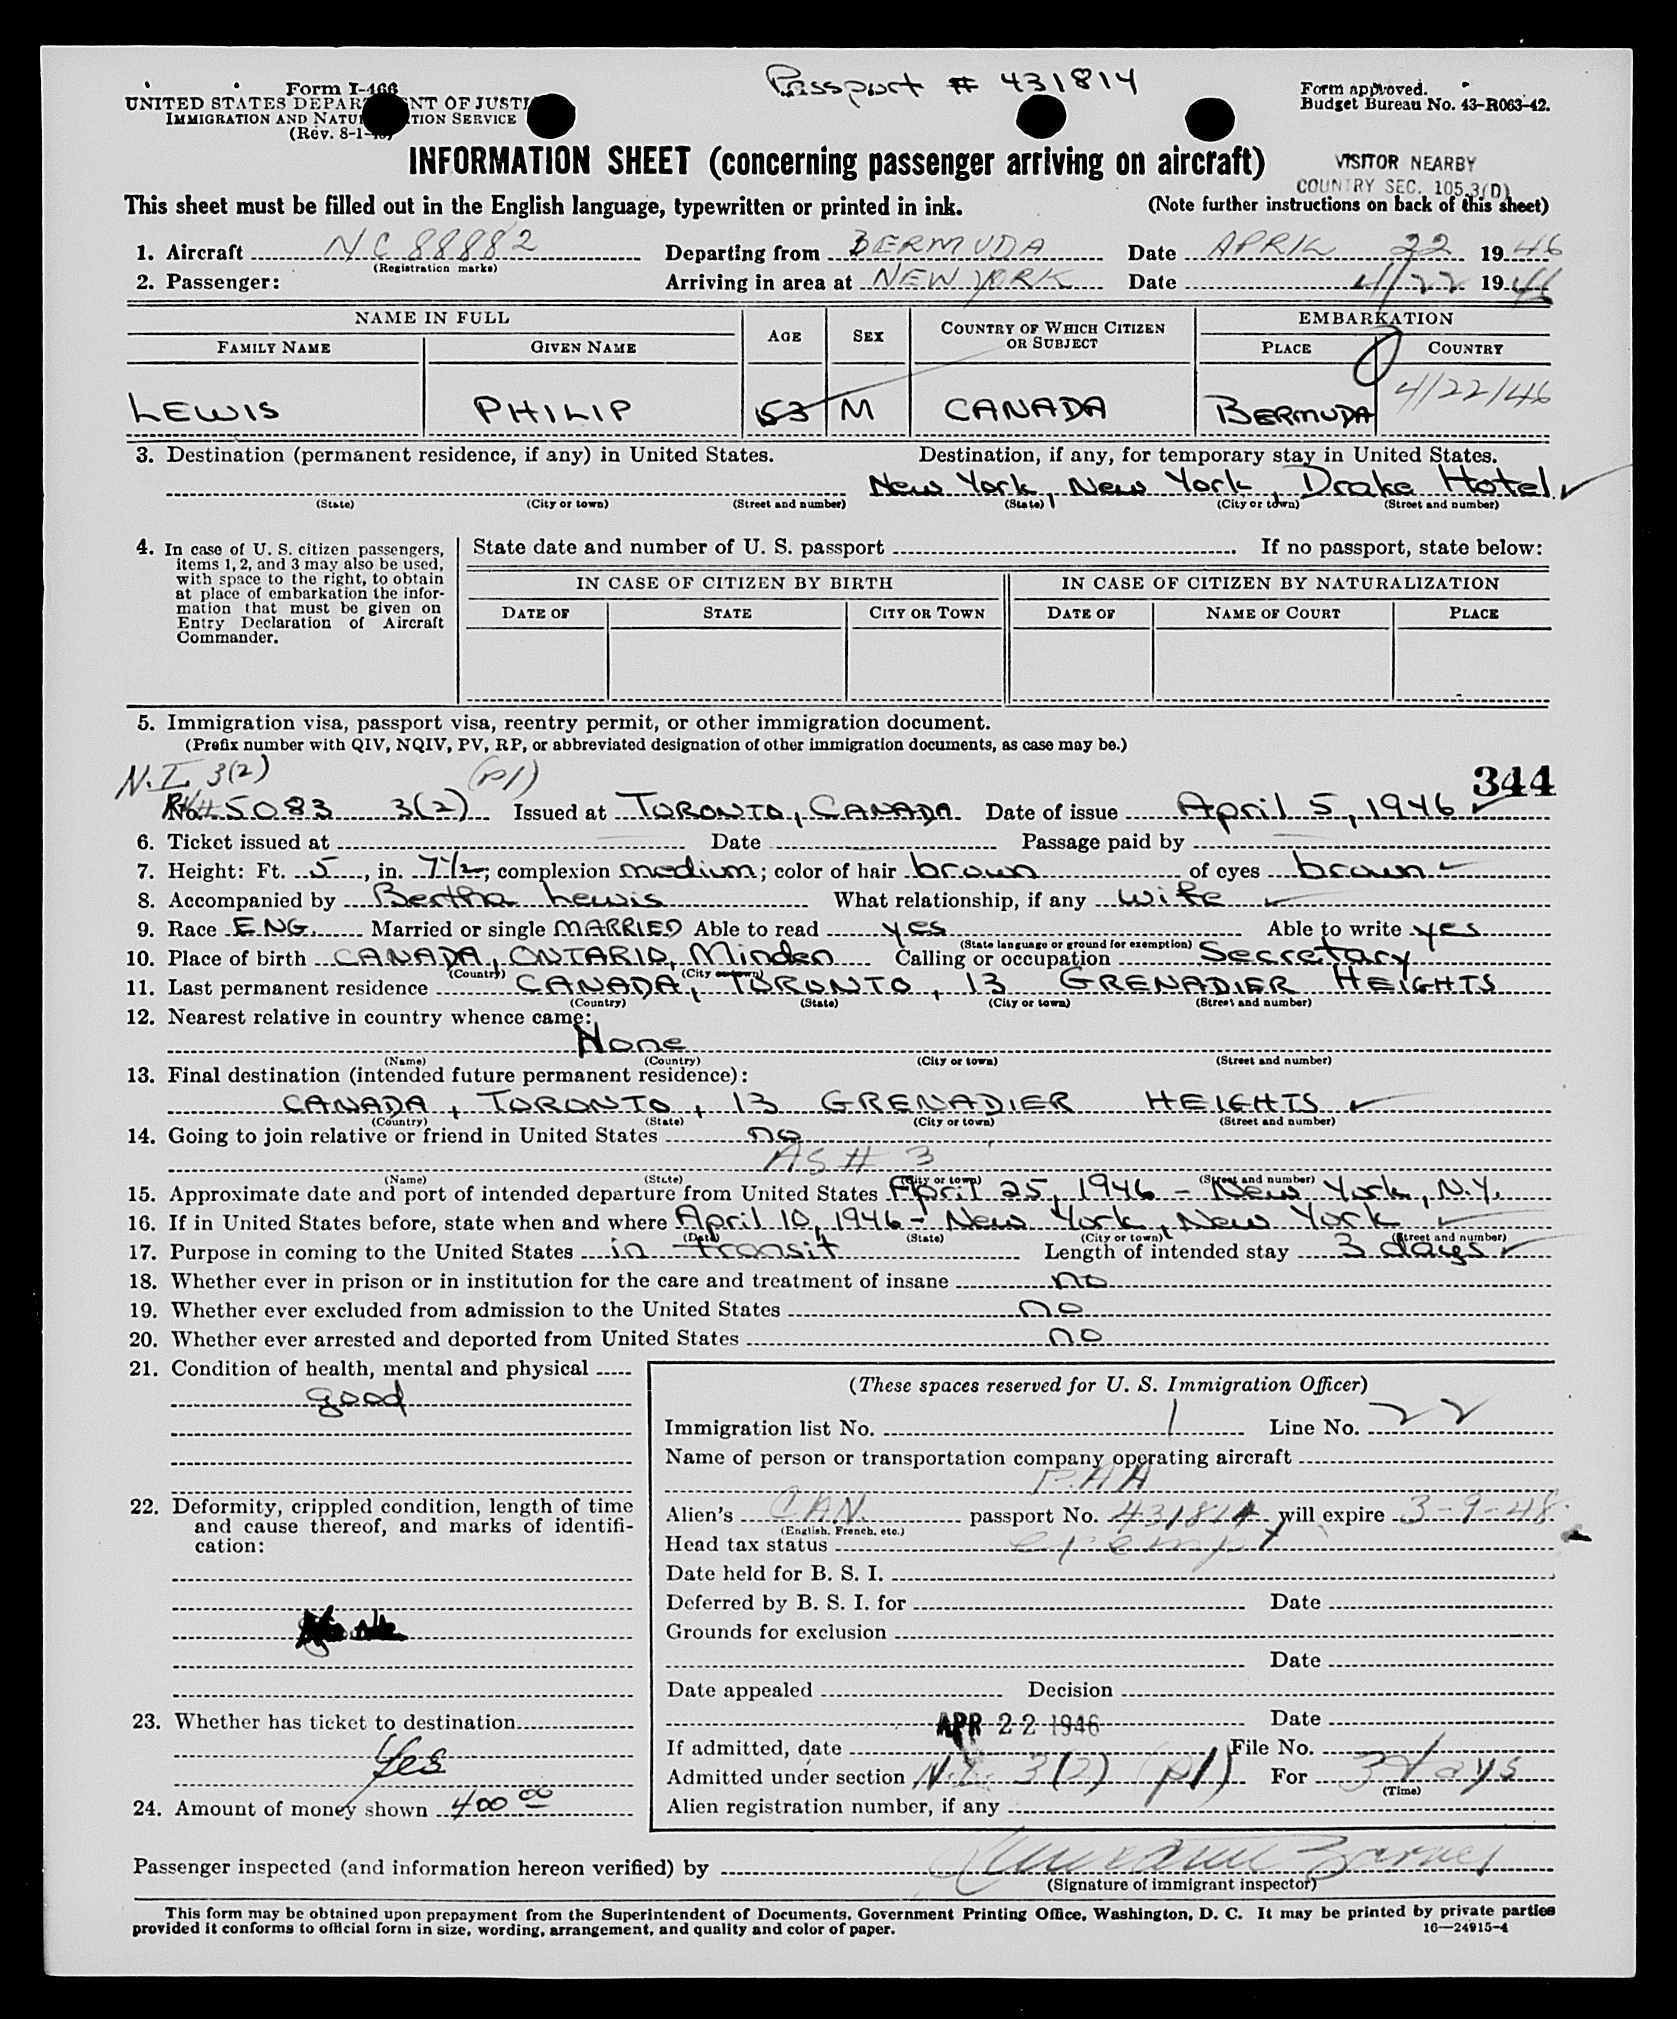 Passport # 431814
Form I-466
UNITED STATES DEPARTMENT OF JUSTICE
IMMIGRATION AND NATURALIZATION SERVICE
(Rev. 8-1-
Form approved.
Budget Bureau No. 43-R063-42.
INFORMATION SHEET (concerning passenger arriving on aircraft)
VISITOR NEARBY
COUNTRY SEC. 105.3(D)
This sheet must be filled out in the English language, typewritten or printed in ink.
(Note further instructions on back of this sheet)
1. Aircraft NC 88882 Departing from BERMUDA Date APRIL 22 1946
(Registration marks)
2. Passenger: Arriving in area at NEW YORK Date 4/22 1946
NAME IN FULL AGE SEX COUNTRY OF WHICH CITIZEN OR SUBJECT EMBARKATION
FAMILY NAME GIVEN NAME PLACE COUNTRY
LEWIS PHILIP 53 M CANADA BERMUDA 4/22/46
3. Destination (permanent residence, if any) in United States. Destination, if any, for temporary stay in United States.
New York, New York, Drake Hotel
(State) (City or town) (Street and number) (State) (City or town) (Street and number)
4. In case of U. S. citizen passengers,
items 1, 2, and 3 may also be used,
with space to the right, to obtain
at place of embarkation the infor-
mation that must be given on
Entry Declaration of Aircraft
Commander.
State date and number of U. S. passport If no passport, state below:
IN CASE OF CITIZEN BY BIRTH IN CASE OF CITIZEN BY NATURALIZATION
DATE OF STATE CITY OR TOWN DATE OF NAME OF COURT PLACE
5. Immigration visa, passport visa, reentry permit, or other immigration document.
(Prefix number with QIV, NQIV, PV, RP, or abbreviated designation of other immigration documents, as case may be.)
N.I. 3(2) (p1) 344
No. 5083 3(2) Issued at TORONTO, CANADA Date of issue April 5, 1946
6. Ticket issued at Date Passage paid by
7. Height: Ft. 5, in. 7½; complexion medium; color of hair brown of eyes brown
8. Accompanied by Bertha Lewis What relationship, if any wife
9. Race ENG. Married or single MARRIED Able to read yes Able to write yes
(State language or ground for exemption)
10. Place of birth CANADA, ONTARIO, Minden Calling or occupation Secretary
(Country) (City or town)
11. Last permanent residence CANADA, TORONTO, 13 GRENADIER HEIGHTS
(Country) (State) (City or town) (Street and number)
12. Nearest relative in country whence came:
None
(Name) (Country) (City or town) (Street and number)
13. Final destination (intended future permanent residence):
CANADA, TORONTO, 13 GRENADIER HEIGHTS
(Country) (State) (City or town) (Street and number)
14. Going to join relative or friend in United States no
AS # 3
(Name) (State) (City or town) (Street and number)
15. Approximate date and port of intended departure from United States April 25, 1946 - New York, N.Y.
16. If in United States before, state when and where April 10, 1946 - New York, New York
(Date) (State) (City or town) (Street and number)
17. Purpose in coming to the United States in transit Length of intended stay 3 days
18. Whether ever in prison or in institution for the care and treatment of insane no
19. Whether ever excluded from admission to the United States no
20. Whether ever arrested and deported from United States no
21. Condition of health, mental and physical
good
22. Deformity, crippled condition, length of time
and cause thereof, and marks of identifi-
cation:
23. Whether has ticket to destination
Yes
24. Amount of money shown 400 00
(These spaces reserved for U. S. Immigration Officer)
Immigration list No. 1 Line No. 22
Name of person or transportation company operating aircraft
P.A.A
Alien's CAN. passport No. 431814 will expire 3-9-48
(English, French, etc.)
Head tax status exempt
Date held for B. S. I.
Deferred by B. S. I. for Date
Grounds for exclusion
Date
Date appealed Decision
APR 22 1946 Date
If admitted, date File No.
Admitted under section N.I. 3(2) (p1) For 3 days
(Time)
Alien registration number, if any
Passenger inspected (and information hereon verified) by Barnes
(Signature of immigrant inspector)
This form may be obtained upon prepayment from the Superintendent of Documents, Government Printing Office, Washington, D. C. It may be printed by private parties
provided it conforms to official form in size, wording, arrangement, and quality and color of paper.
16—24915-4